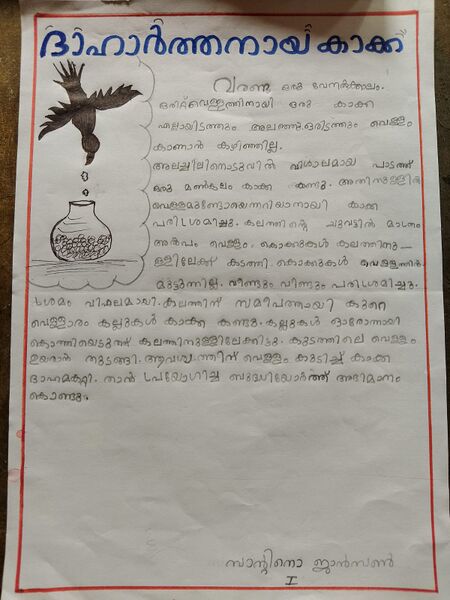 ദാഹാർത്തനായ കാക്ക
വരണ്ട ഒരു വേനൽക്കാലം.
ഒരിറ്റ് വെള്ളത്തിനായി ഒരു കാക്ക
എല്ലായിടത്തും അലഞ്ഞു. ഒരിടത്തും വെള്ളം
കാണാൻ കഴിഞ്ഞില്ല.
അലച്ചിലിനൊടുവിൽ വിശാലമായ പാടത്ത്
ഒരു മൺകലം കാക്ക കണ്ടു. അതിനുള്ളിൽ
വെള്ളമുണ്ടോയെന്നറിയാനായി കാക്ക
പരിശ്രമിച്ചു. കലത്തിന്റെ ചുവട്ടിൽ മാത്രം
അൽപം വെള്ളം. കൊക്കുകൾ കലത്തിനു-
ള്ളിലേക്ക് കടത്തി. കൊക്കുകൾ വെള്ളത്തിൽ
മുട്ടുന്നില്ല. വീണ്ടും വീണ്ടും പരിശ്രമിച്ചു.
ശ്രമം വിഫലമായി. കലത്തിന് സമീപത്തായി കുറെ
വെള്ളാരം കല്ലുകൾ കാക്ക കണ്ടു. കല്ലുകൾ ഓരോന്നായി
കൊത്തിയെടുത്ത് കലത്തിനുള്ളിലേക്കിട്ടു. കുടത്തിലെ വെള്ളം
ഉയരാൻ തുടങ്ങി. ആവശ്യത്തിന് വെള്ളം കുടിച്ച് കാക്ക
ദാഹമകറ്റി. താൻ പ്രയോഗിച്ച ബുദ്ധിയോർത്ത് അഭിമാനം
കൊണ്ടു.
സാന്റിനൊ ജാൻസൺ
I